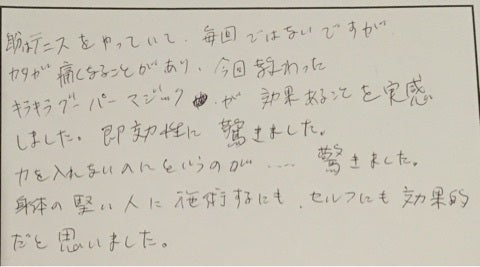 テニスをやっていて、毎回ではないですが
カタが痛くなることがあり、今回教わった
キラキラグーパーマジックが効果あることを実感
しました。即効性に驚きました。
力を入れないのにというのが…… 驚きました。
身体の堅い人に施術するにも、セルフにも効果的
だと思いました。